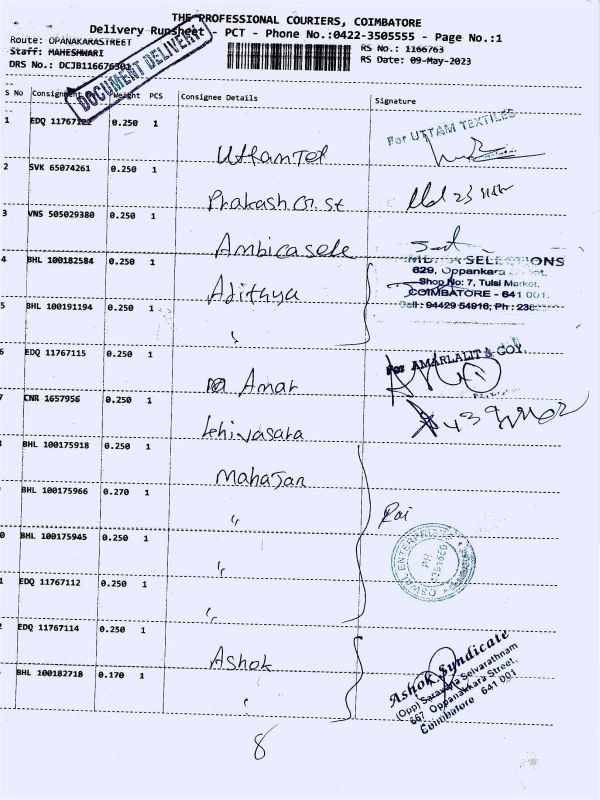 THE PROFESSIONAL COURIERS, COIMBATORE
Delivery Runsheet - PCT - Phone No.:0422-3505555 - Page No.:1
Route: OPANAKARASTREET
Staff: MAHESHWARI
DRS No.: DCJB116676301
RS No.: 1166763
RS Date: 09-May-2023
DOCUMENT DELIVERY
S No Weight PCS Consignee Details Signature
1 EDQ 0.250 1
UttamTex
For UTTAM TEXTILES
2 SVK 65074261 0.250 1
Prakash
3 VNS 505029380 0.250 1
Ambicasele
SELECTIONS
629, Oppankara
Shop No: 7, Tulsi Market,
COIMBATORE - 641 001.
Cell : 94429 54916, Ph :
4 BHL 100182584 0.250 1
Adithya
5 BHL 100191194 0.250 1
"
6 EDQ 11767115 0.250 1
Amar
For AMARLALIT & COY.
7 CNR 1657956 0.250 1
8 BHL 100175918 0.250 1
Mahajan
BHL 100175966 0.270 1
"
Rai
0 BHL 100175945 0.250 1
"
OSWAL ENTERPRISES
1 EDQ 11767112 0.250 1
"
2 EDQ 11767114 0.250 1
Ashok
BHL 100182718 0.170 1
"
Ashok Syndicate
(Opp) Saravana Selvarathnam
667, Oppanakkara Street,
Coimbatore 641 001
8